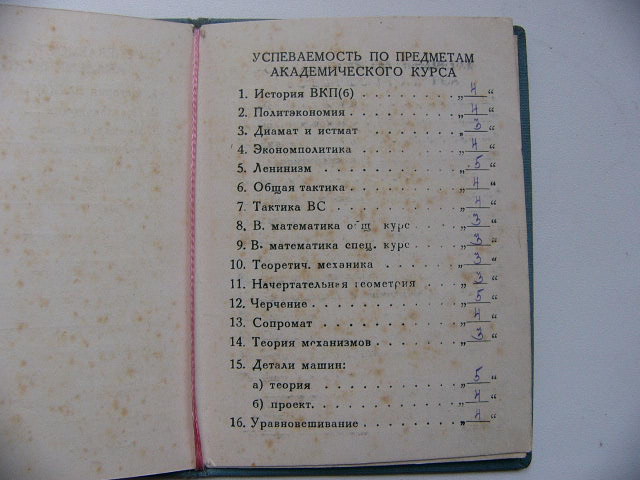 УСПЕВАЕМОСТЬ ПО ПРЕДМЕТАМ
АКАДЕМИЧЕСКОГО КУРСА
1. История ВКП(б) . . . . . . . . „4“
2. Политэкономия . . . . . . . . „4“
3. Диамат и истмат . . . . . . . „3“
4. Экономполитика . . . . . . . . „4“
5. Ленинизм . . . . . . . . . . „5“
6. Общая тактика . . . . . . . . „4“
7. Тактика ВС . . . . . . . . . „4“
8. В. математика общ. курс . . . . „3“
9. В. математика спец. курс . . . . „3“
10. Теоретич. механика . . . . . . „3“
11. Начертательная геометрия . . . „3“
12. Черчение . . . . . . . . . . „5“
13. Сопромат . . . . . . . . . . „4“
14. Теория механизмов . . . . . . . „3“
15. Детали машин:
а) теория . . . . . . . . . . „5“
б) проект. . . . . . . . . . . „4“
16. Уравновешивание . . . . . . . „4“